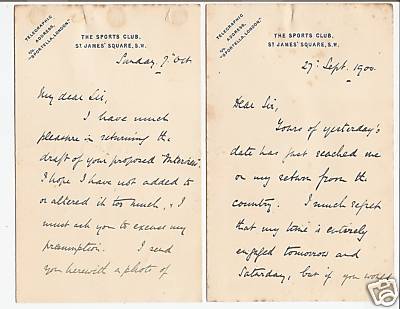 TELEGRAPHIC
ADDRESS,
"SPORTELLA, LONDON."
THE SPORTS CLUB,
ST JAMES' SQUARE, S.W.
Sunday, 7th Oct
My dear Sir,
I have much
pleasure in returning the
draft of your proposed "Interview".
I hope I have not added to
or altered it too much, & I
must ask you to excuse my
presumption. I send
you herewith a photo of
TELEGRAPHIC
ADDRESS,
"SPORTELLA, LONDON."
THE SPORTS CLUB,
ST JAMES' SQUARE, S.W.
27th Sept. 1900
Dear Sir,
Yours of yesterday's
date has just reached me
on my return from the
country. I much regret
that my time is entirely
engaged tomorrow and
Saturday, but if you would